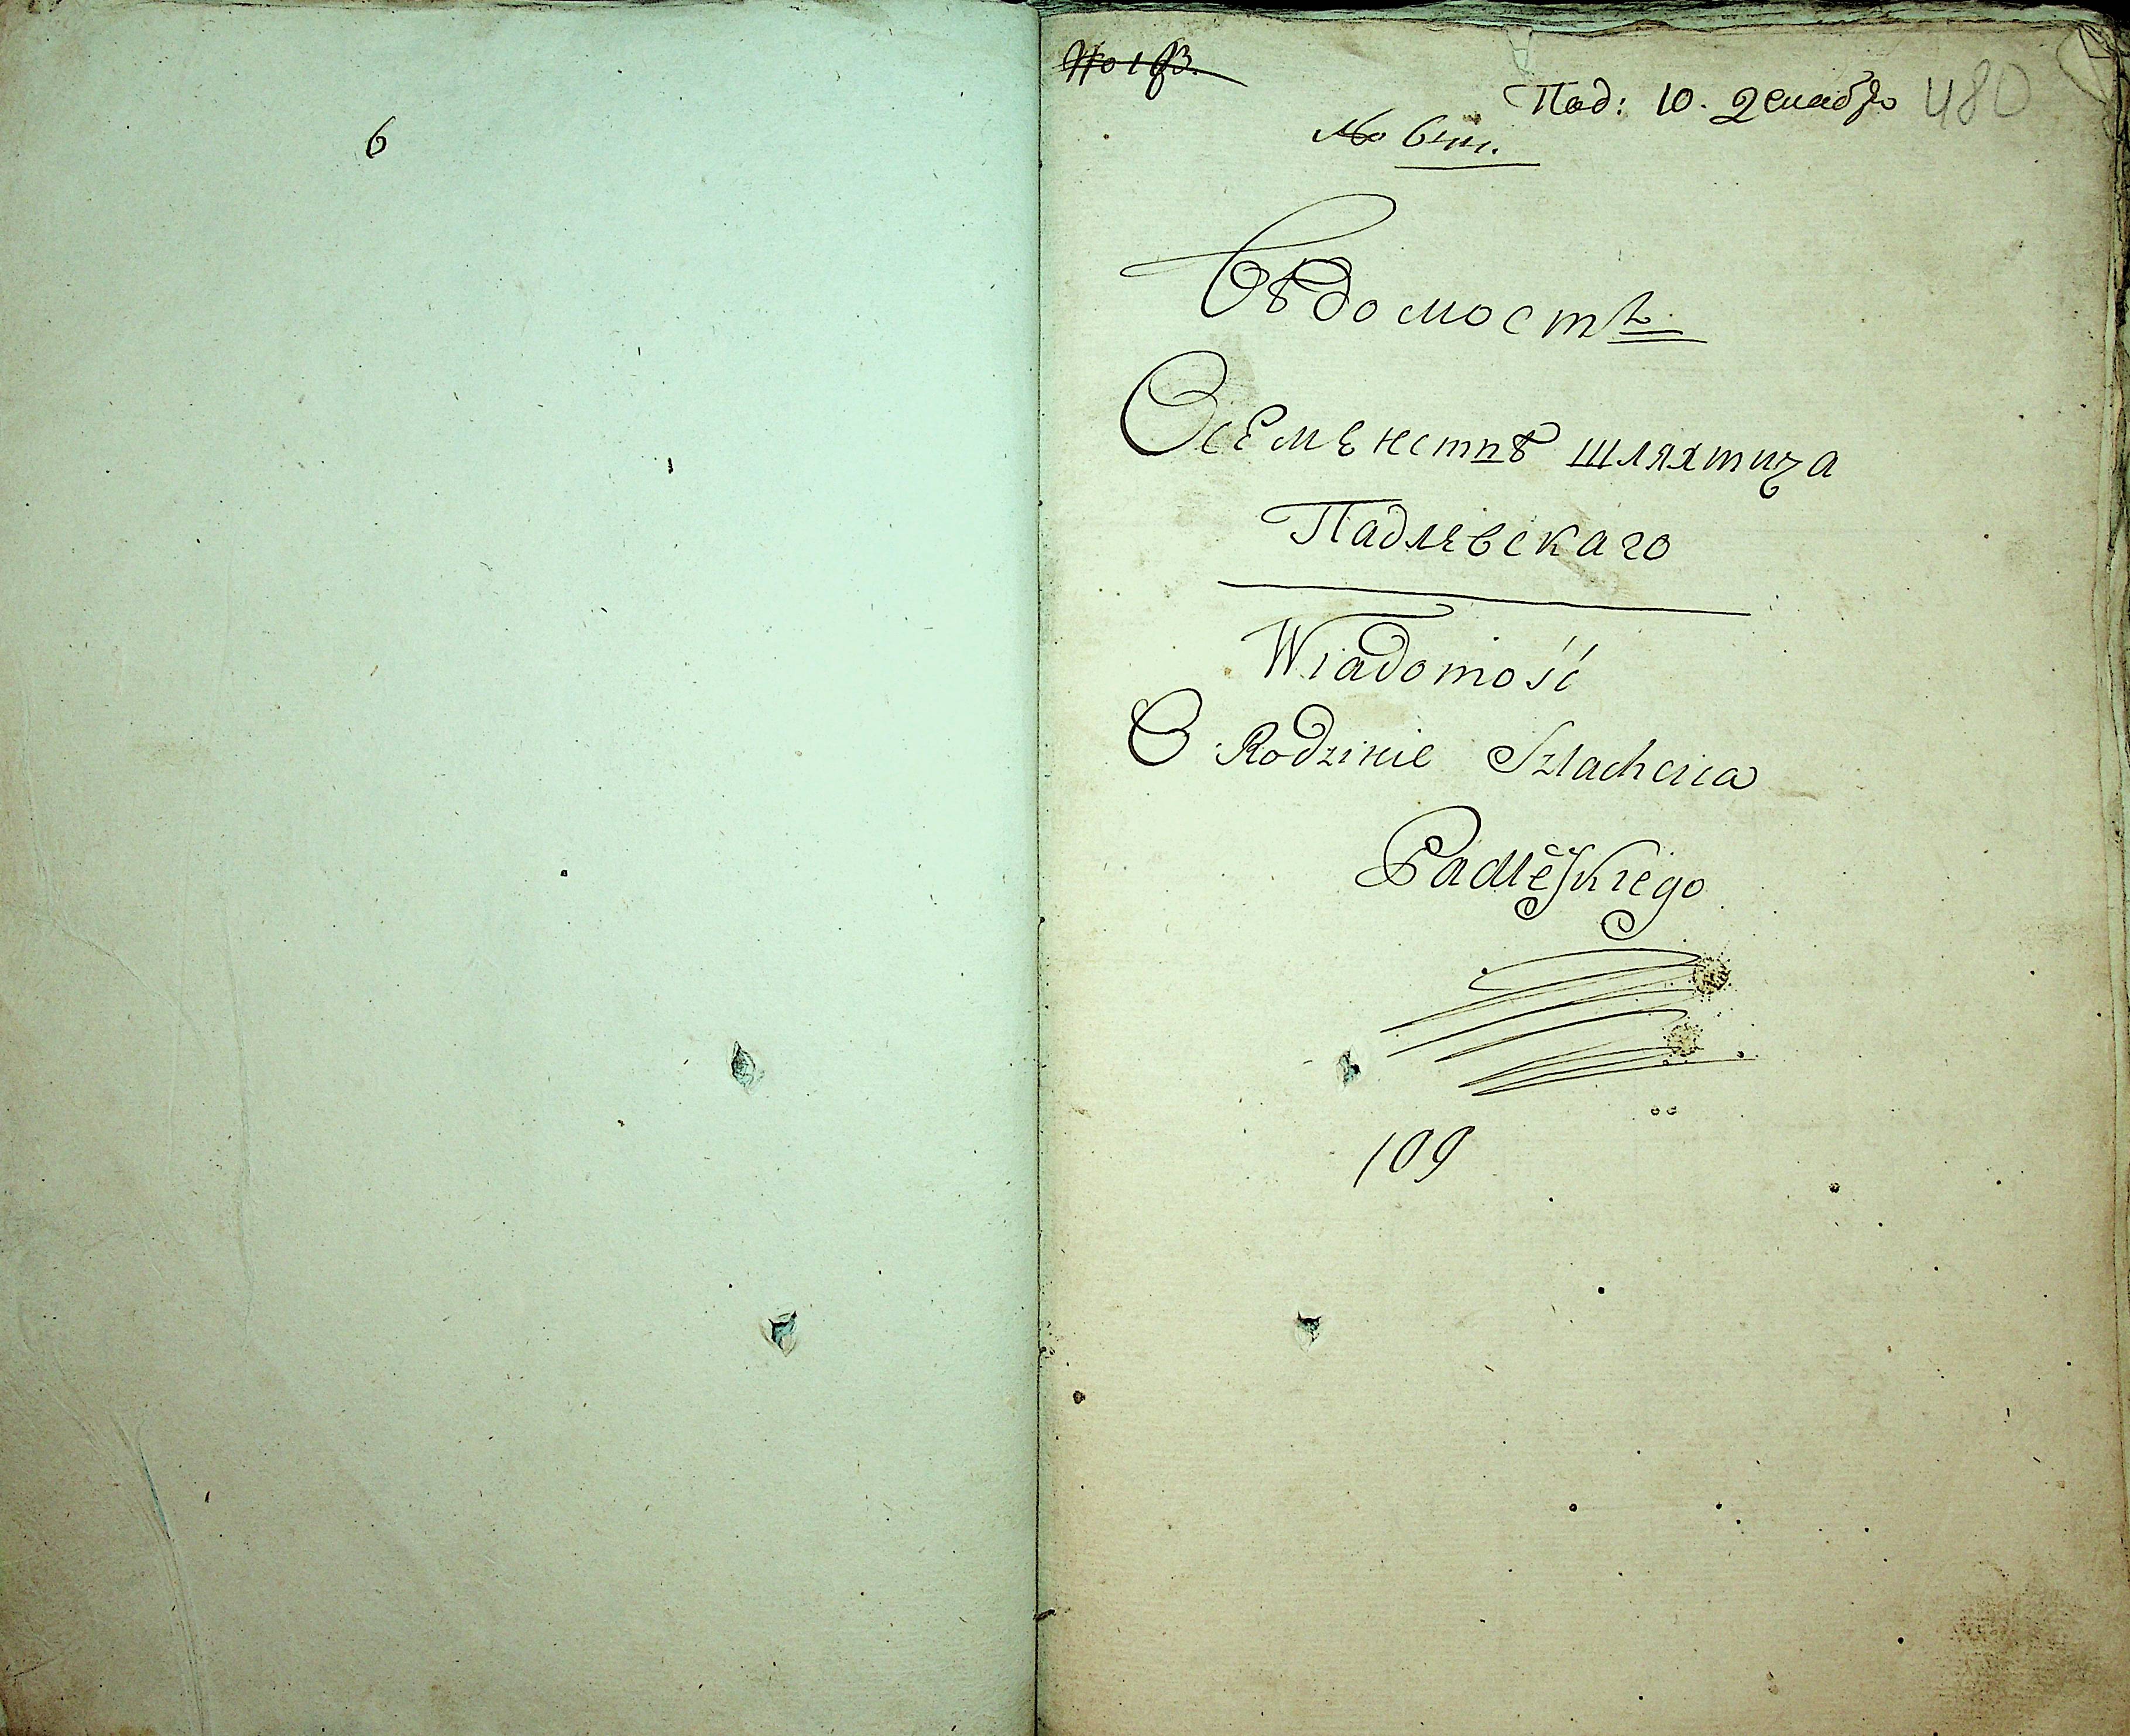 6
Под: 10. декабря
480
№
Вѣдомость
О семѣнствѣ шляхтича
Падлевскаго
Wiadomość
O Rodzinie Szlachcica
Padlewskiego
109